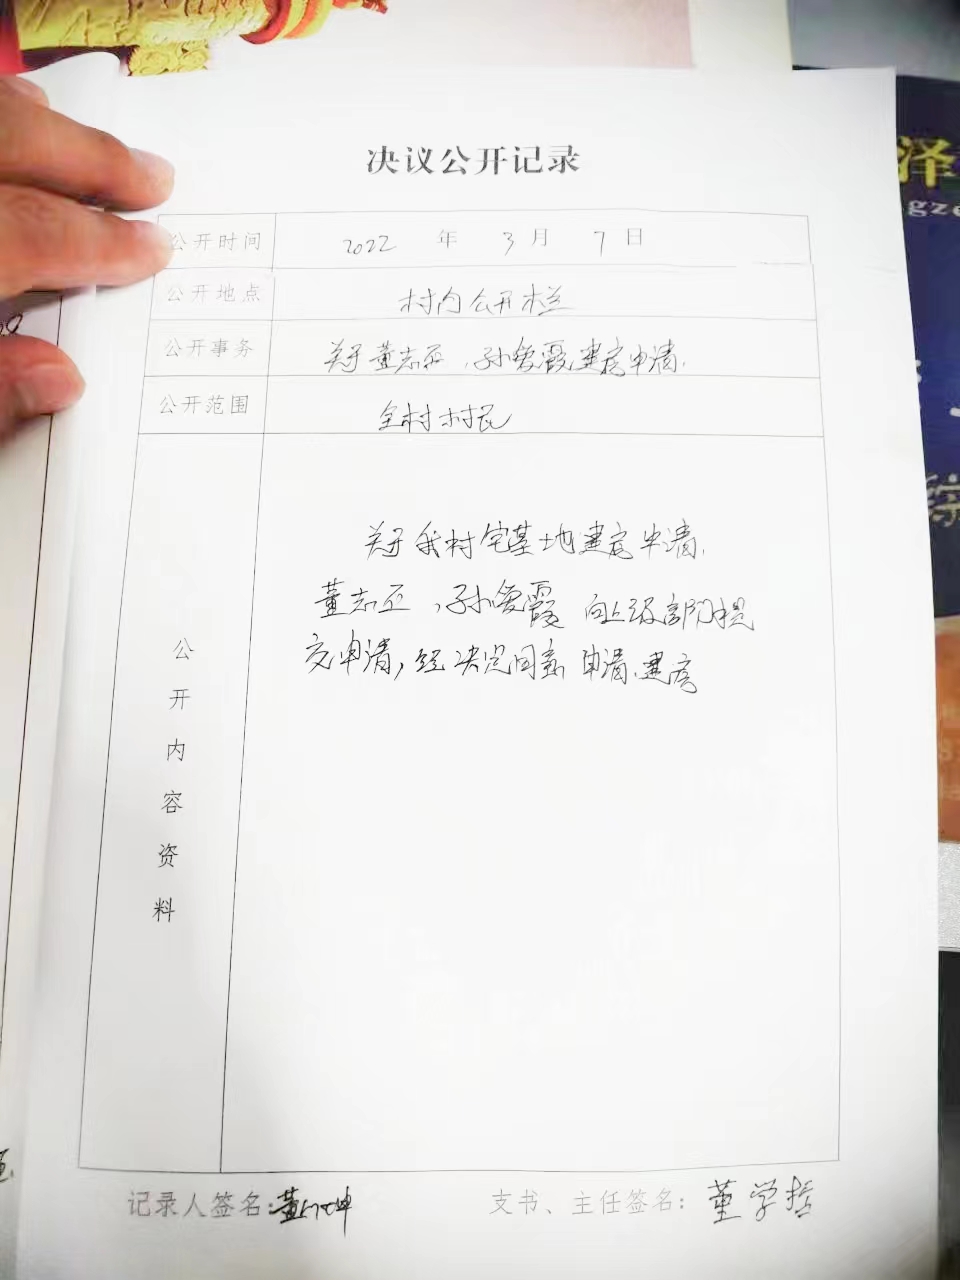 决议公开记录
公开时间 2022 年 3 月 7 日
公开地点 村内公开栏
公开事务 关于董志丕,孙爱霞建房申请.
公开范围 全村村民
公开内容资料
关于我村宅基地建房申请.
董志丕,孙爱霞 向上级部门提
交申请,经决定同意 申请.建房
记录人签名:董 坤
支书、主任签名:董学哲
泽
gze
综